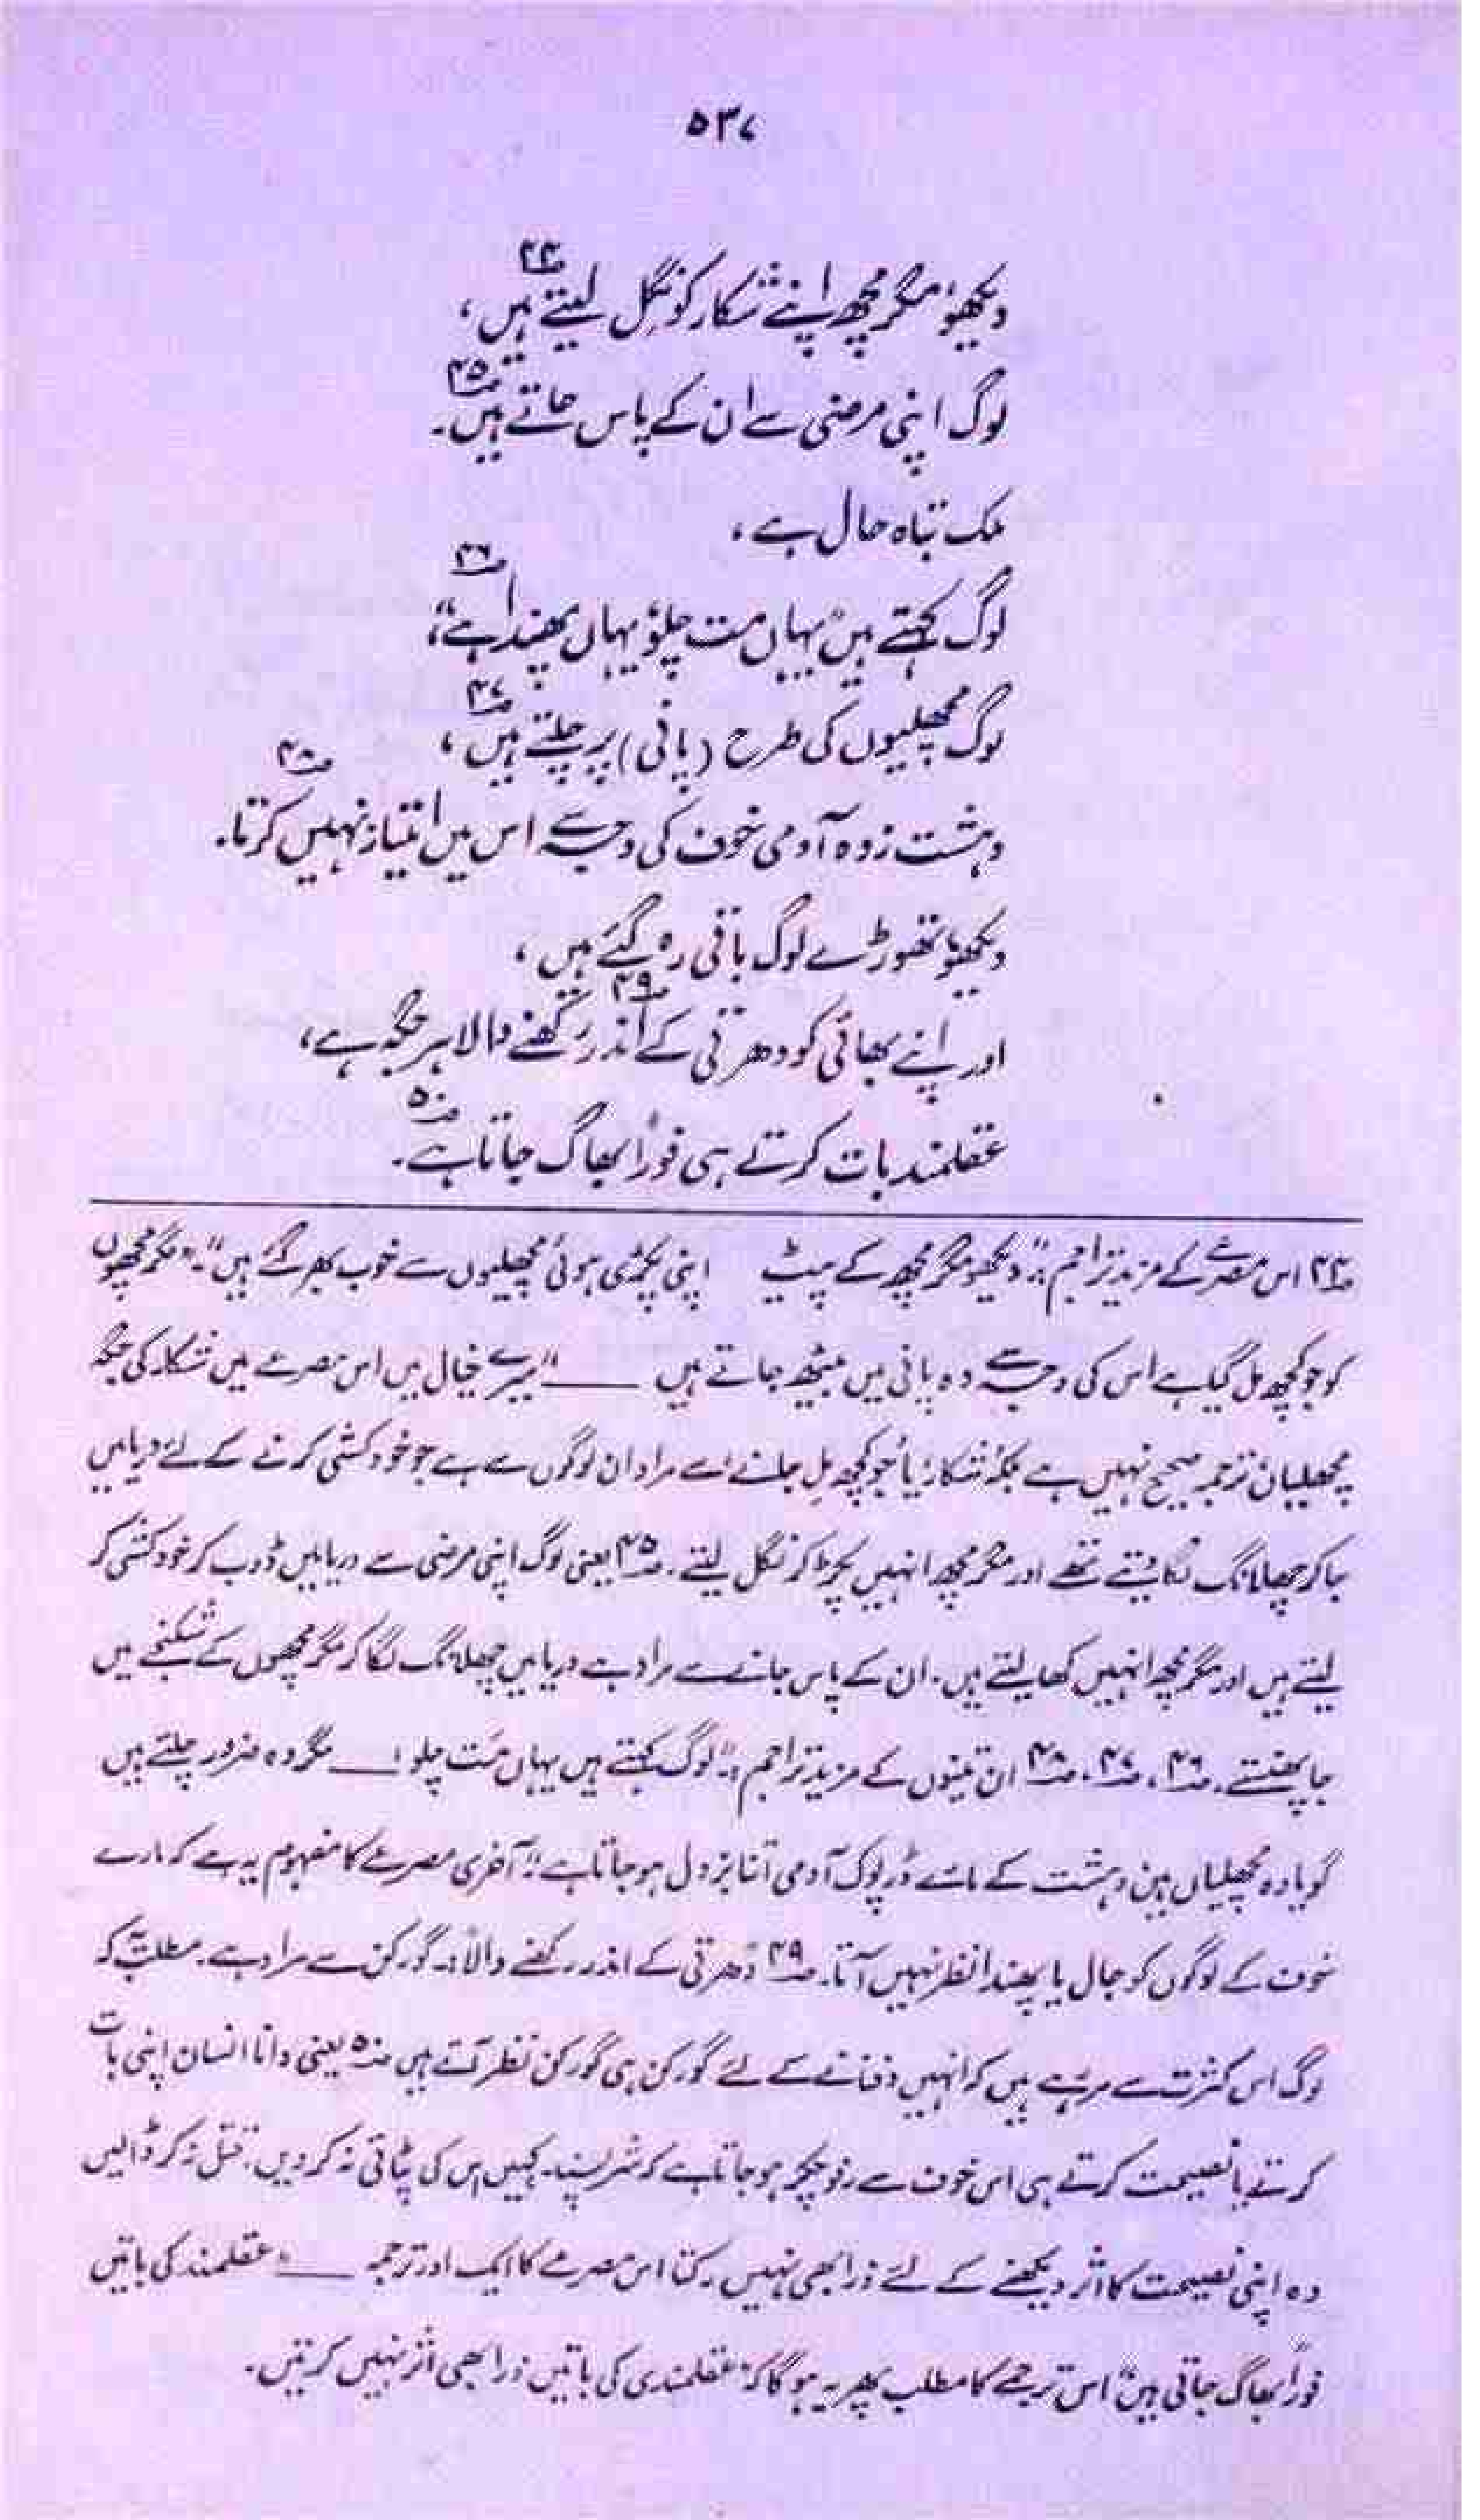 ۵۳۷
دیکھو، مگرمچھ اپنے شکار کو نگل لیتے ہیں ۴۴؎،
لوگ اپنی مرضی سے ان کے پاس جاتے ہیں ۴۵؎۔
ملک تباہ حال ہے،
لوگ کہتے ہیں "یہاں مت چلو، یہاں پھندا ہے" ۴۶؎،
لوگ مچھلیوں کی طرح (پانی) پر چلتے ہیں ۴۷؎،
دہشت زدہ آدمی خوف کی وجہ سے اس میں امتیاز نہیں کرتا ۴۸؎۔
دیکھو، تھوڑے لوگ باقی رہ گئے ہیں،
اور اپنے بھائی کو دھرتی کے اندر رکھنے والا ۴۹؎ ہر جگہ ہے،
عقلمند بات کرتے ہی فوراً بھاگ جاتا ہے ۵۰؎۔
۴۴؎ اس مصرعے کے مزید تراجم:۔ "دیکھو مگرمچھ کے پیٹ اپنی پکڑی ہوئی مچھلیوں سے خوب بھر گئے ہیں"۔ "مگرمچھوں
کو جو کچھ مل گیا ہے اس کی وجہ سے وہ پانی میں بیٹھ جاتے ہیں ــــ" میرے خیال میں اس مصرعے میں شکار کی جگہ
مچھلیاں ترجمہ صحیح نہیں ہے بلکہ 'شکار' یا 'جو کچھ مل جانے' سے مراد ان لوگوں سے ہے جو خودکشی کرنے کے لئے دریا میں
جا کر چھلانگ لگا دیتے تھے اور مگرمچھ انہیں پکڑ کر نگل لیتے۔ ۴۵؎ یعنی لوگ اپنی مرضی سے دریا میں ڈوب کر خودکشی کر
لیتے ہیں اور مگرمچھ انہیں کھا لیتے ہیں۔ ان کے پاس جانے سے مراد ہے دریا میں چھلانگ لگا کر مگرمچھوں کے شکنجے میں
جا پھنستے۔ ۴۶؎، ۴۷؎، ۴۸؎ ان تینوں کے مزید تراجم:۔ "لوگ کہتے ہیں یہاں مت چلو! ــــ مگر وہ ضرور چلتے ہیں
گویا وہ مچھلیاں ہیں، دہشت کے مارے ڈرپوک آدمی اتنا بزدل ہو جاتا ہے"۔ آخری مصرعے کا مفہوم یہ ہے کہ مارے
خوف کے لوگوں کو جال یا پھندا نظر نہیں آتا۔ ۴۹؎ "دھرتی کے اندر رکھنے والا":۔ گورکن سے مراد ہے۔ مطلب یہ کہ
لوگ اس کثرت سے مر رہے ہیں کہ انہیں دفنانے کے لئے گورکن ہی گورکن نظر آتے ہیں ۵۰؎ یعنی دانا انسان اپنی بات
کرتے یا نصیحت کرتے ہی اس خوف سے رفوچکر ہو جاتا ہے کہ شرپسند کہیں اس کی پٹائی نہ کر دیں، قتل نہ کر ڈالیں
وہ اپنی نصیحت کا اثر دیکھنے کے لئے ذرا بھی نہیں رکتا اس مصرعے کا ایک اور ترجمہ ــــ "عقلمند کی باتیں
فوراً بھاگ جاتی ہیں" اس ترجمے کا مطلب پھر یہ ہو گا کہ عقلمندی کی باتیں ذرا بھی اثر نہیں کرتیں۔